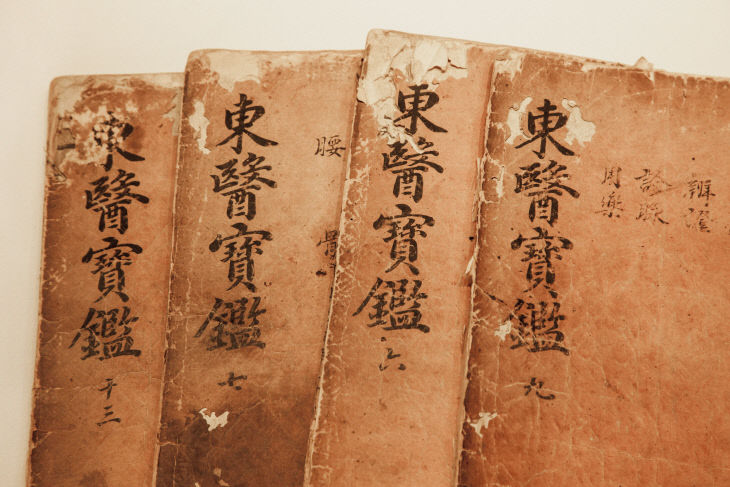 東醫寶鑑 十三
東醫寶鑑 七
腰
骨
東醫寶鑑 六
東醫寶鑑 九
辨證
診脉
用藥